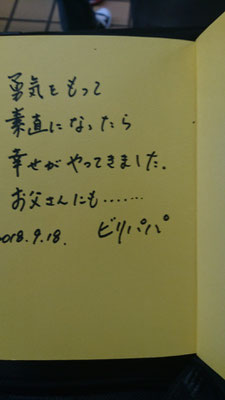 勇気をもって
素直になったら
幸せがやってきました。
お父さんにも……
2018.9.18. ビリパパ